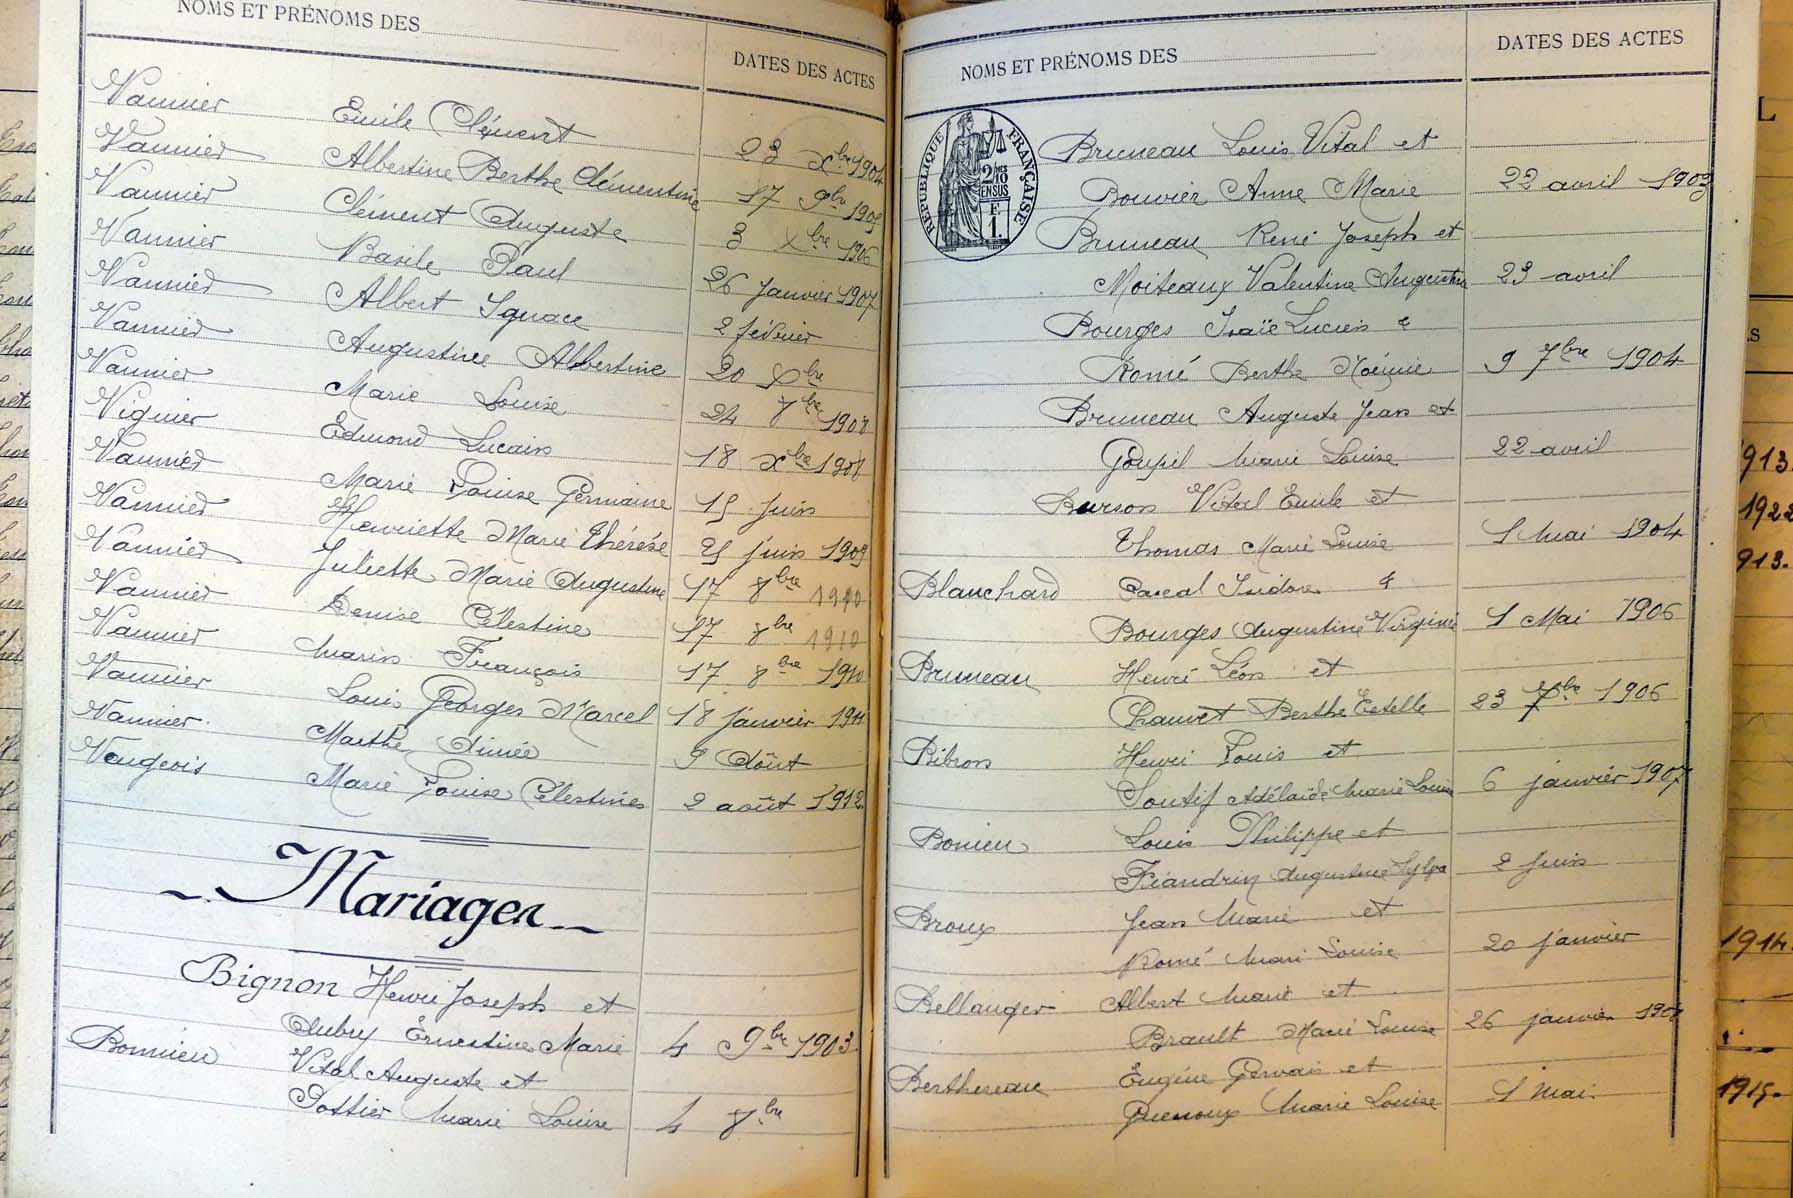 NOMS ET PRÉNOMS DES
DATES DES ACTES
Vannier Emile Clément 23 Xbre 1904
Vannier Albertine Berthe Clémentine 17 9bre 1905
Vannier Clément Auguste 3 Xbre 1906
Vannier Basile Paul 26 Janvier 1907
Vannier Albert Ignace 2 février
Vannier Augustine Albertine 20 Xbre
Vannier Marie Louise 24 8bre 1908
Viguier Edmond Lucain 18 Xbre 1908
Vannier Marie Louise Germaine 15 Juin
Vannier Henriette Marie Thérèse 25 juin 1909
Vannier Juliette Marie Augustine 17 8bre 1910
Vannier Denise Célestine 17 8bre 1910
Vannier Marin François 17 8bre 1910
Vannier Louis Georges Marcel 18 janvier 1911
Vannier Marthe Aimée 9 Août
Vaugeois Marie Louise Célestine 2 août 1912
Mariages
Bignon Henri Joseph et
Aubry Ernestine Marie 4 9bre 1903
Bonnieu Vital Auguste et
Pottier Marie Louise 4 8bre
NOMS ET PRÉNOMS DES
DATES DES ACTES
RÉPUBLIQUE FRANÇAISE
2/10
EN SUS
F
1.
Bruneau Louis Vital et
Bouvier Anne Marie 22 avril 1903
Bruneau René Joseph et
Moiteaux Valentine Augustine 23 avril
Bourges Isaïe Lucien &
Romé Berthe Noémie 9 7bre 1904
Bruneau Auguste Jean et
Goupil Marie Louise 22 avril
Burson Vital Emile et
Thomas Marie Louise 1 Mai 1904
Blanchard Pascal Isidore &
Bourges Augustine Virginie 1 Mai 1906
Bruneau Henri Léon et
Chauvet Berthe Estelle 23 7bre 1906
Bibron Henri Louis et
Soutif Adélaïde Marie Louise 6 janvier 1907
Bonieu Louis Philippe et
Fiandrin Augustine 2 Juin
Broux Jean Marie et
Romé Marie Louise 20 janvier
Bellanger Albert Marie et
Brault Marie Louise 26 janvier 1908
Berthereau Eugène Gervais et
Guenoux Marie Louise 1 Mai.
1913.
1922
913.
1914.
1915.